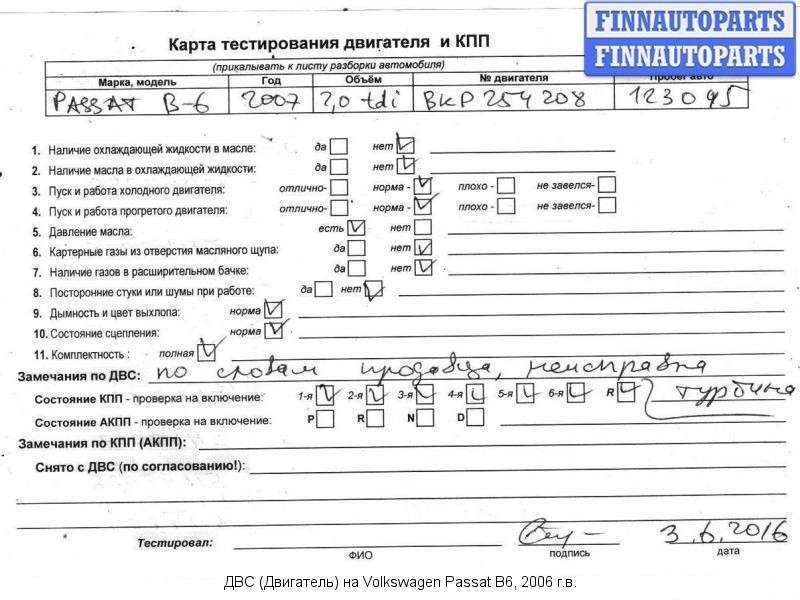 FINNAUTOPARTS
FINNAUTOPARTS
Карта тестирования двигателя и КПП
(прикалывать к листу разборки автомобиля)
Марка, модель Год Объём № двигателя Пробег авто
PASSAT B-6 2007 2,0 tdi BKP 254208 123095
1. Наличие охлаждающей жидкости в масле: да нет
2. Наличие масла в охлаждающей жидкости: да нет
3. Пуск и работа холодного двигателя: отлично- норма - плохо - не завелся-
4. Пуск и работа прогретого двигателя: отлично- норма - плохо - не завелся-
5. Давление масла: есть нет
6. Картерные газы из отверстия масляного щупа: да нет
7. Наличие газов в расширительном бачке: да нет
8. Посторонние стуки или шумы при работе: да нет
9. Дымность и цвет выхлопа: норма
10. Состояние сцепления: норма
11. Комплектность : полная
Замечания по ДВС: по словам продавца, неисправна
Состояние КПП - проверка на включение: 1-я 2-я 3-я 4-я 5-я 6-я R турбина
Состояние АКПП - проверка на включение: P R N D
Замечания по КПП (АКПП):
Снято с ДВС (по согласованию!):
Тестировал: 3.6.2016
ФИО подпись дата
ДВС (Двигатель) на Volkswagen Passat B6, 2006 г.в.